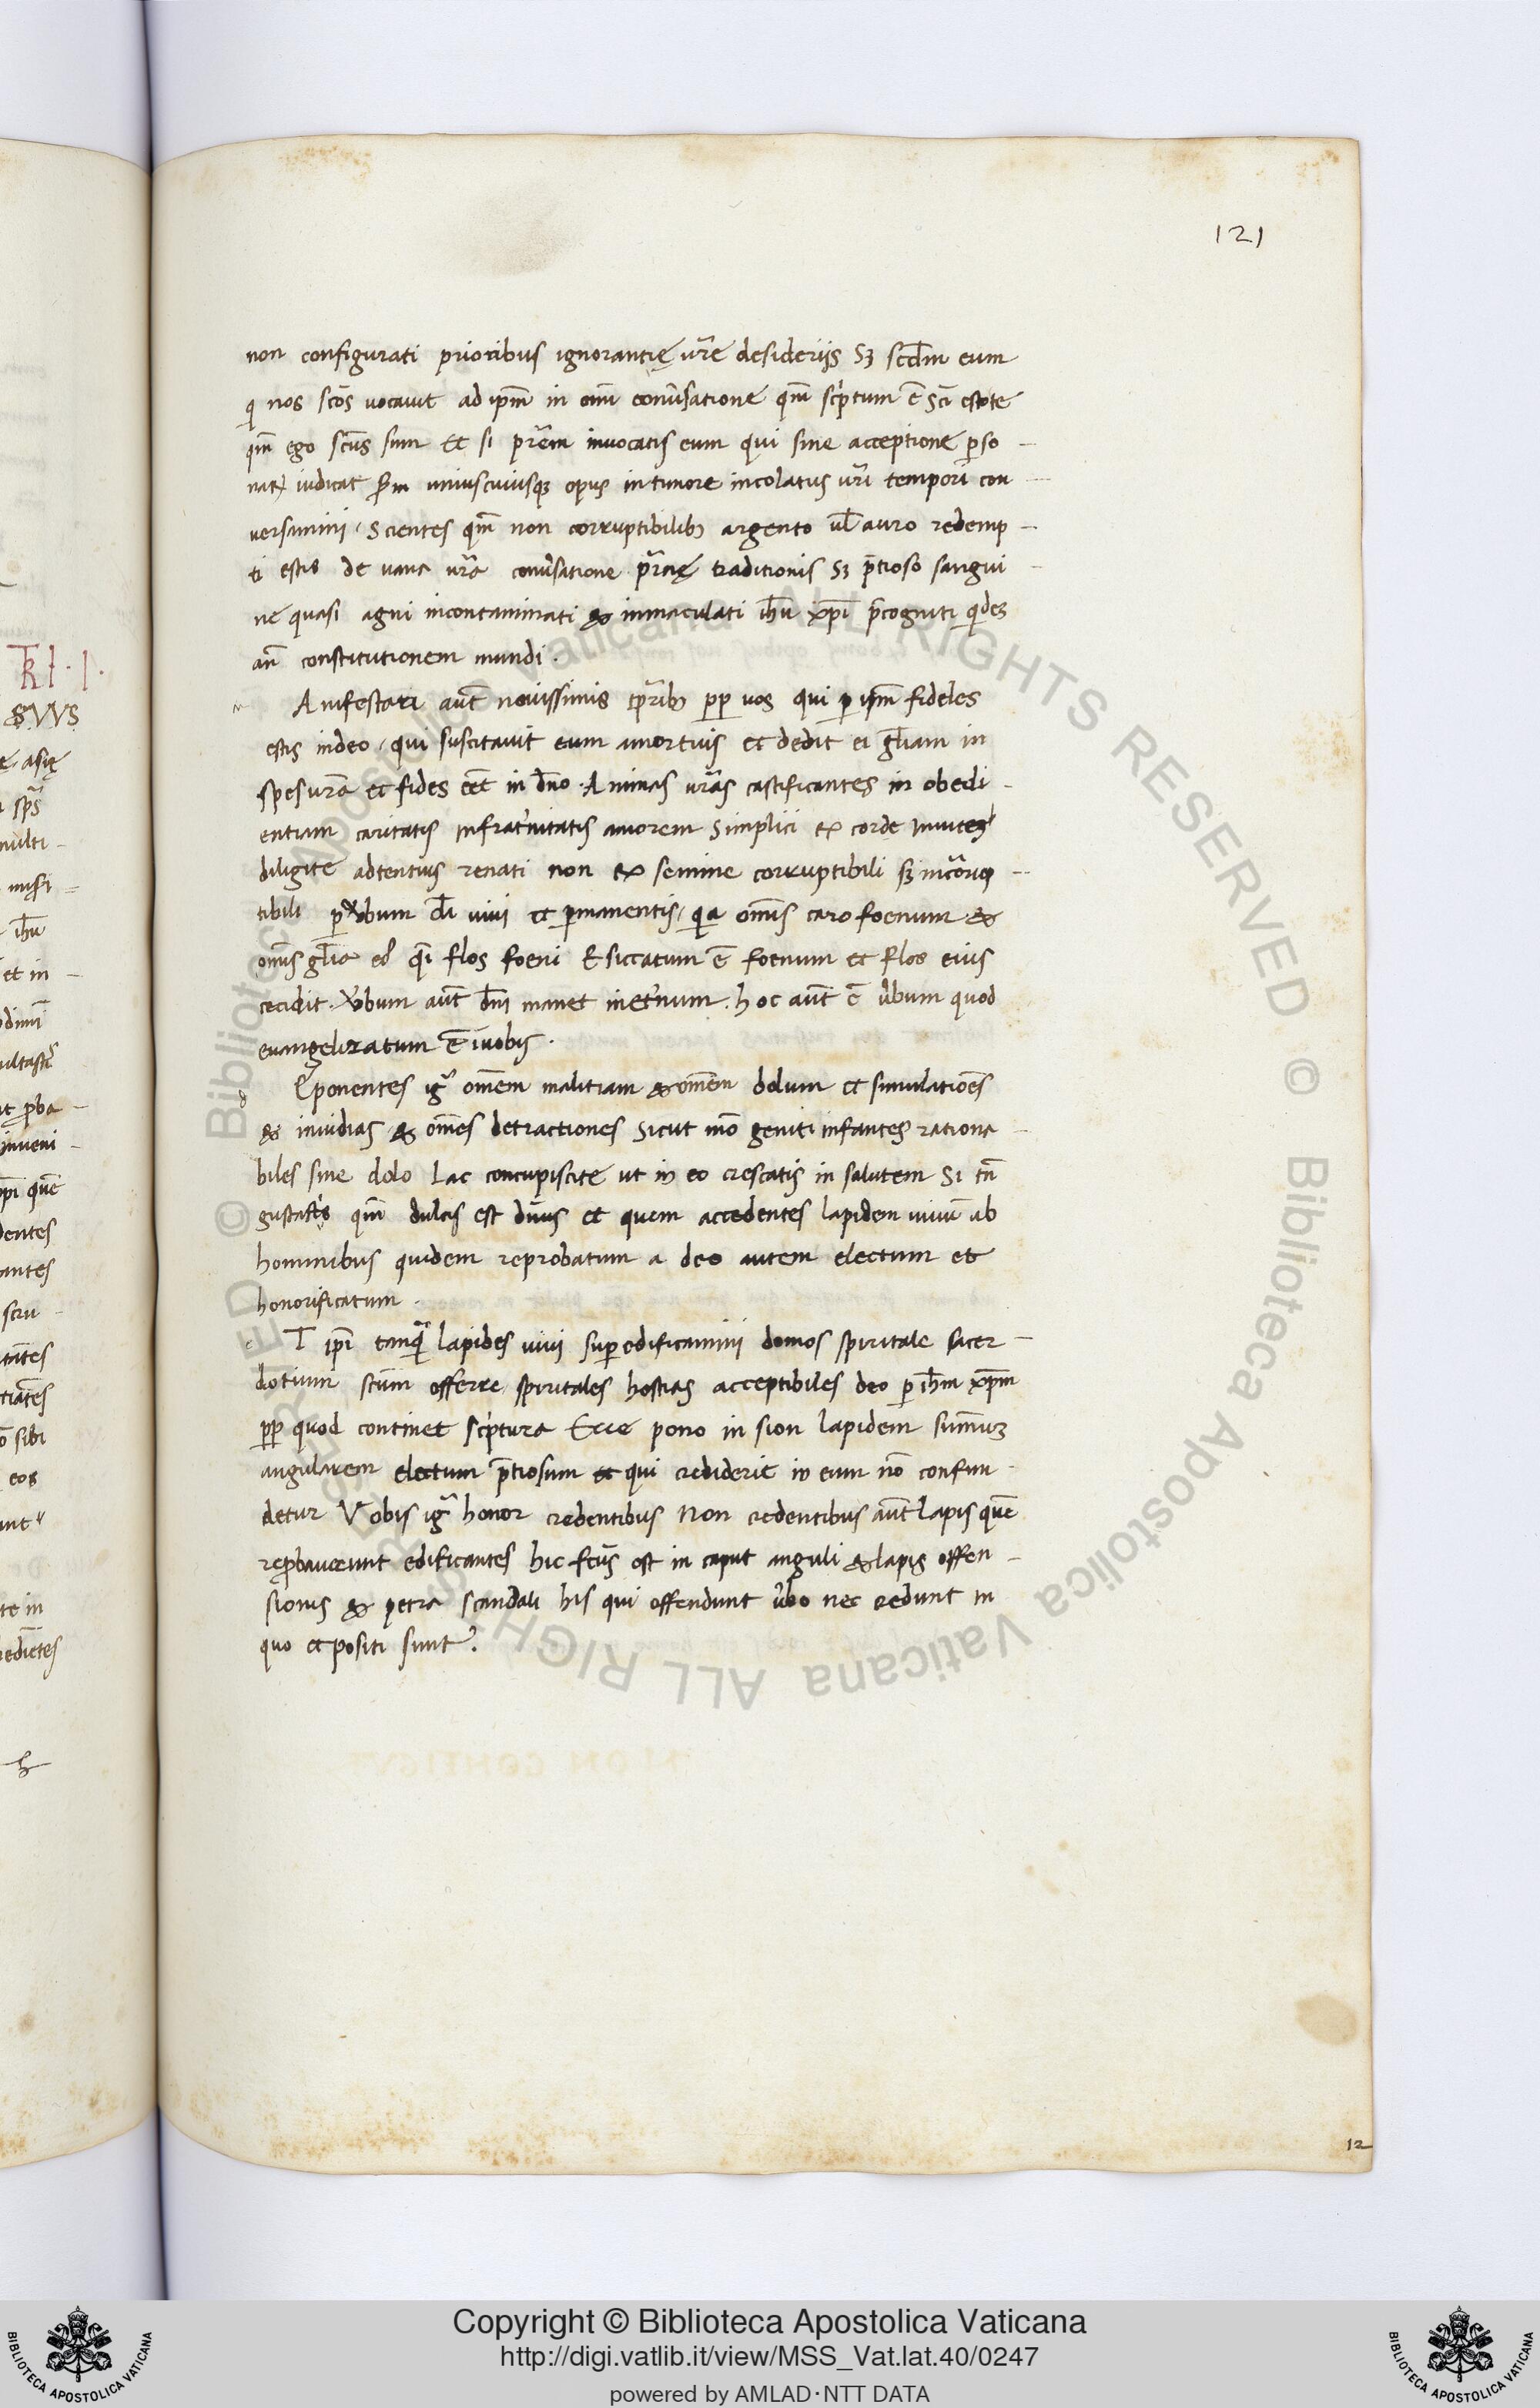 121
non configurati prioribus ignorantię ur̄e desiderijs Sʒ scd̄m eum
qi nos scōs uocauit ad ip̄m in om̄i conu̓satione qm̄ scp̓tum ē Sc̄i estote
qm̄ ego sc̄us sum et si pr̄em inuocatis eum qui sine acceptione ꝑso -
naꝝ iudicat scd̄m uniuscuiusqꝫ opus in timore incolatus ur̄i tempori con -
uersimini · Scientes qm̄ non corruptibilibꝫ argento ul̄ auro redemp -
ti estis de uana ur̄a conu̓satione pr̄nę traditionis Sʒ p̄tioso sangui -
ne quasi agni incontaminati & inmaculati ih̄u xp̄i p̄cogniti qides
an̄ constitutionem mundi .
m Anifestati aut̄ nouissimis tp̄ribꝫ pp̄ uos qui ꝑ ip̄m fideles
estis indeo · qui suscitauit eum amortuis et dedit ei gl̄iam in
spes ur̄a et fides eēt in dn̄o · Animas ur̄as castificantes in obedi -
entiam caritatis infrat̓nitatis amorem Simplici ex corde inuicē
diligite adtentius renati non ex semine corruptibili sʒ incorrup -
tibili ꝑ u̓bum dī uiui et ꝑmanentis · qia om̄is caro foenum &
om̄is gl̄ia eꝰ qi flos foeni Exsiccatum ē foenum et flos eius
cecidit · u̓bum aut̄ dn̄i manet inet̓num . hoc aut̄ ē u̓bum quod
euangelizatum ē iuobis .
d Eponentes igr̄ om̄em malitiam & om̄em dolum et simulatiōes
& inuidias & om̄es detractiones Sicut mō geniti infantes rationa -
biles sine dolo Lac concupiscite ut in eo crescatis in salutem Si tn̄
gustastis qm̄ dulcis est dn̄us et quem accedentes lapidem uiuū ab
hominibus quidem reprobatum a deo autem electum et
honorificatum .
e T ip̄i tanqa̓ lapides uiui suꝑedificamini domos spiritale sacer -
dotium scūm offerre spiritales hostias acceptibiles deo ꝑ ih̄m xp̄m
pp̄ quod continet scp̓tura Ecce pono in sion lapidem summuʒ
angularem electum p̄tiosum et qui crediderit in eum nō confun -
detur Vobis igr̄ honor credentibus Non credentibus aut̄ lapis quē
reꝓbauerunt edificantes hic fc̄us est in caput anguli & lapis offen -
sionis & petra scandali his qui offendunt u̓bo nec credunt in
quo et positi sunt .
12
Copyright © Biblioteca Apostolica Vaticana
http://digi.vatlib.it/view/MSS_Vat.lat.40/0247
powered by AMLAD·NTT DATA